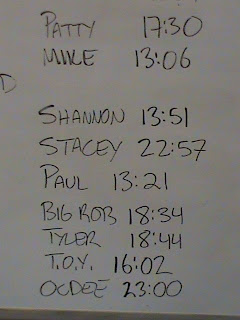 PATTY 17:30
MIKE 13:06
D
SHANNON 13:51
STACEY 22:57
PAUL 13:21
BIG ROB 18:34
TYLER 18:44
T.O.Y. 16:02
OCDEE 23:00